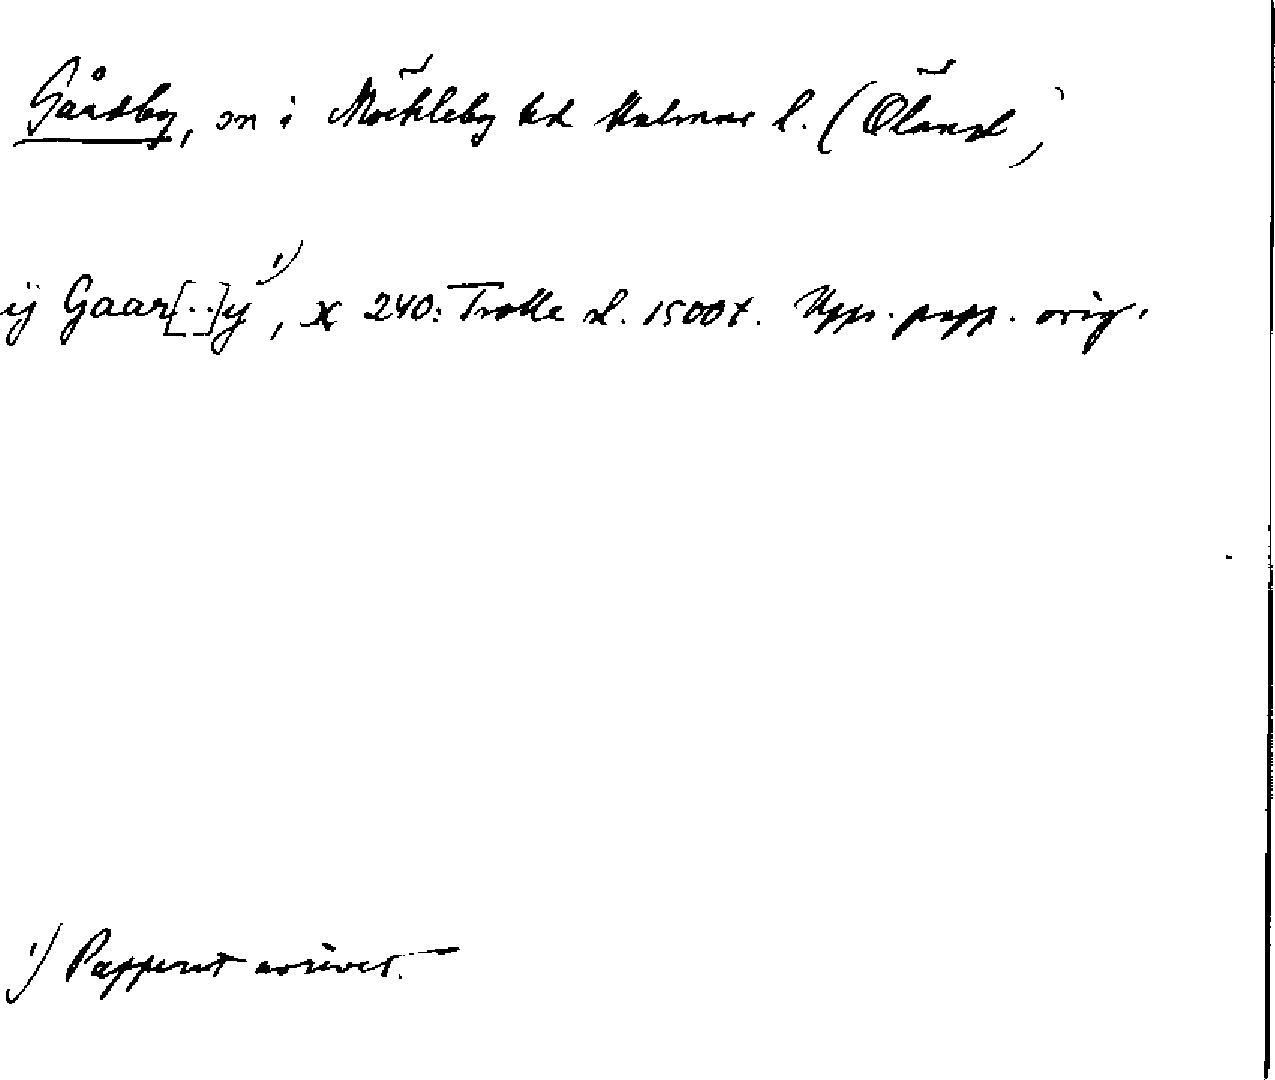 Gårdby, sn i Möckleby hd Kalmar l. (Öland)
ij Gaar[..]y ¹), x 240: Trolle d. 1500t. Upps. papp. orig.
¹) Papperet avrivet.